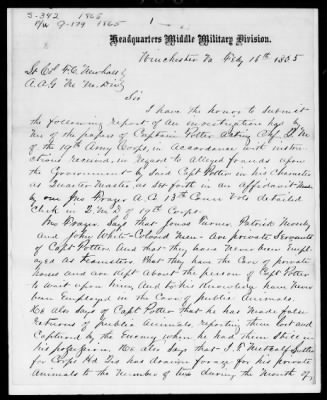 S-342 1865
1
Headquarters Middle Military Division.
Winchester Va Feby 16th 1865
Lt Col F. C. Newhall
A.A.G. M. M. Div
Sir
I have the honor to submit
the following report of an investigation by
me of the papers of Captain Potter Acting Chf Q.M.
of the 19th Army Corps, in accordance with instr
uctions received, in regard to alleged frauds upon
the Government by said Capt Potter in his Character
as Quarter Master, as set forth in an affidavit made
by one Jno Frazer A.C. 13th Conn Vols detailed
Clerk in Q.M.D. of 19th Corps.
Jno Frazer says that Jonas Turner, Patrick
and John White-Colored men are private Servants
of Capt Potter, and that they have never been Empl
oyed as teamsters. That they have the Care of private
horses and are kept about the person of Capt Potter
to wait upon him, and to his knowledge have never
been Employed in the Care of public Animals.
He also says of Capt Potter that he has made false
returns of public Animals, reporting them lost and
Captured by the Enemy when he had them still in
his possession. He also says that J. E. Metcalf Sutler
for Corps Hd Qrs has drawn forage for his private
Animals to the number of two during the month of